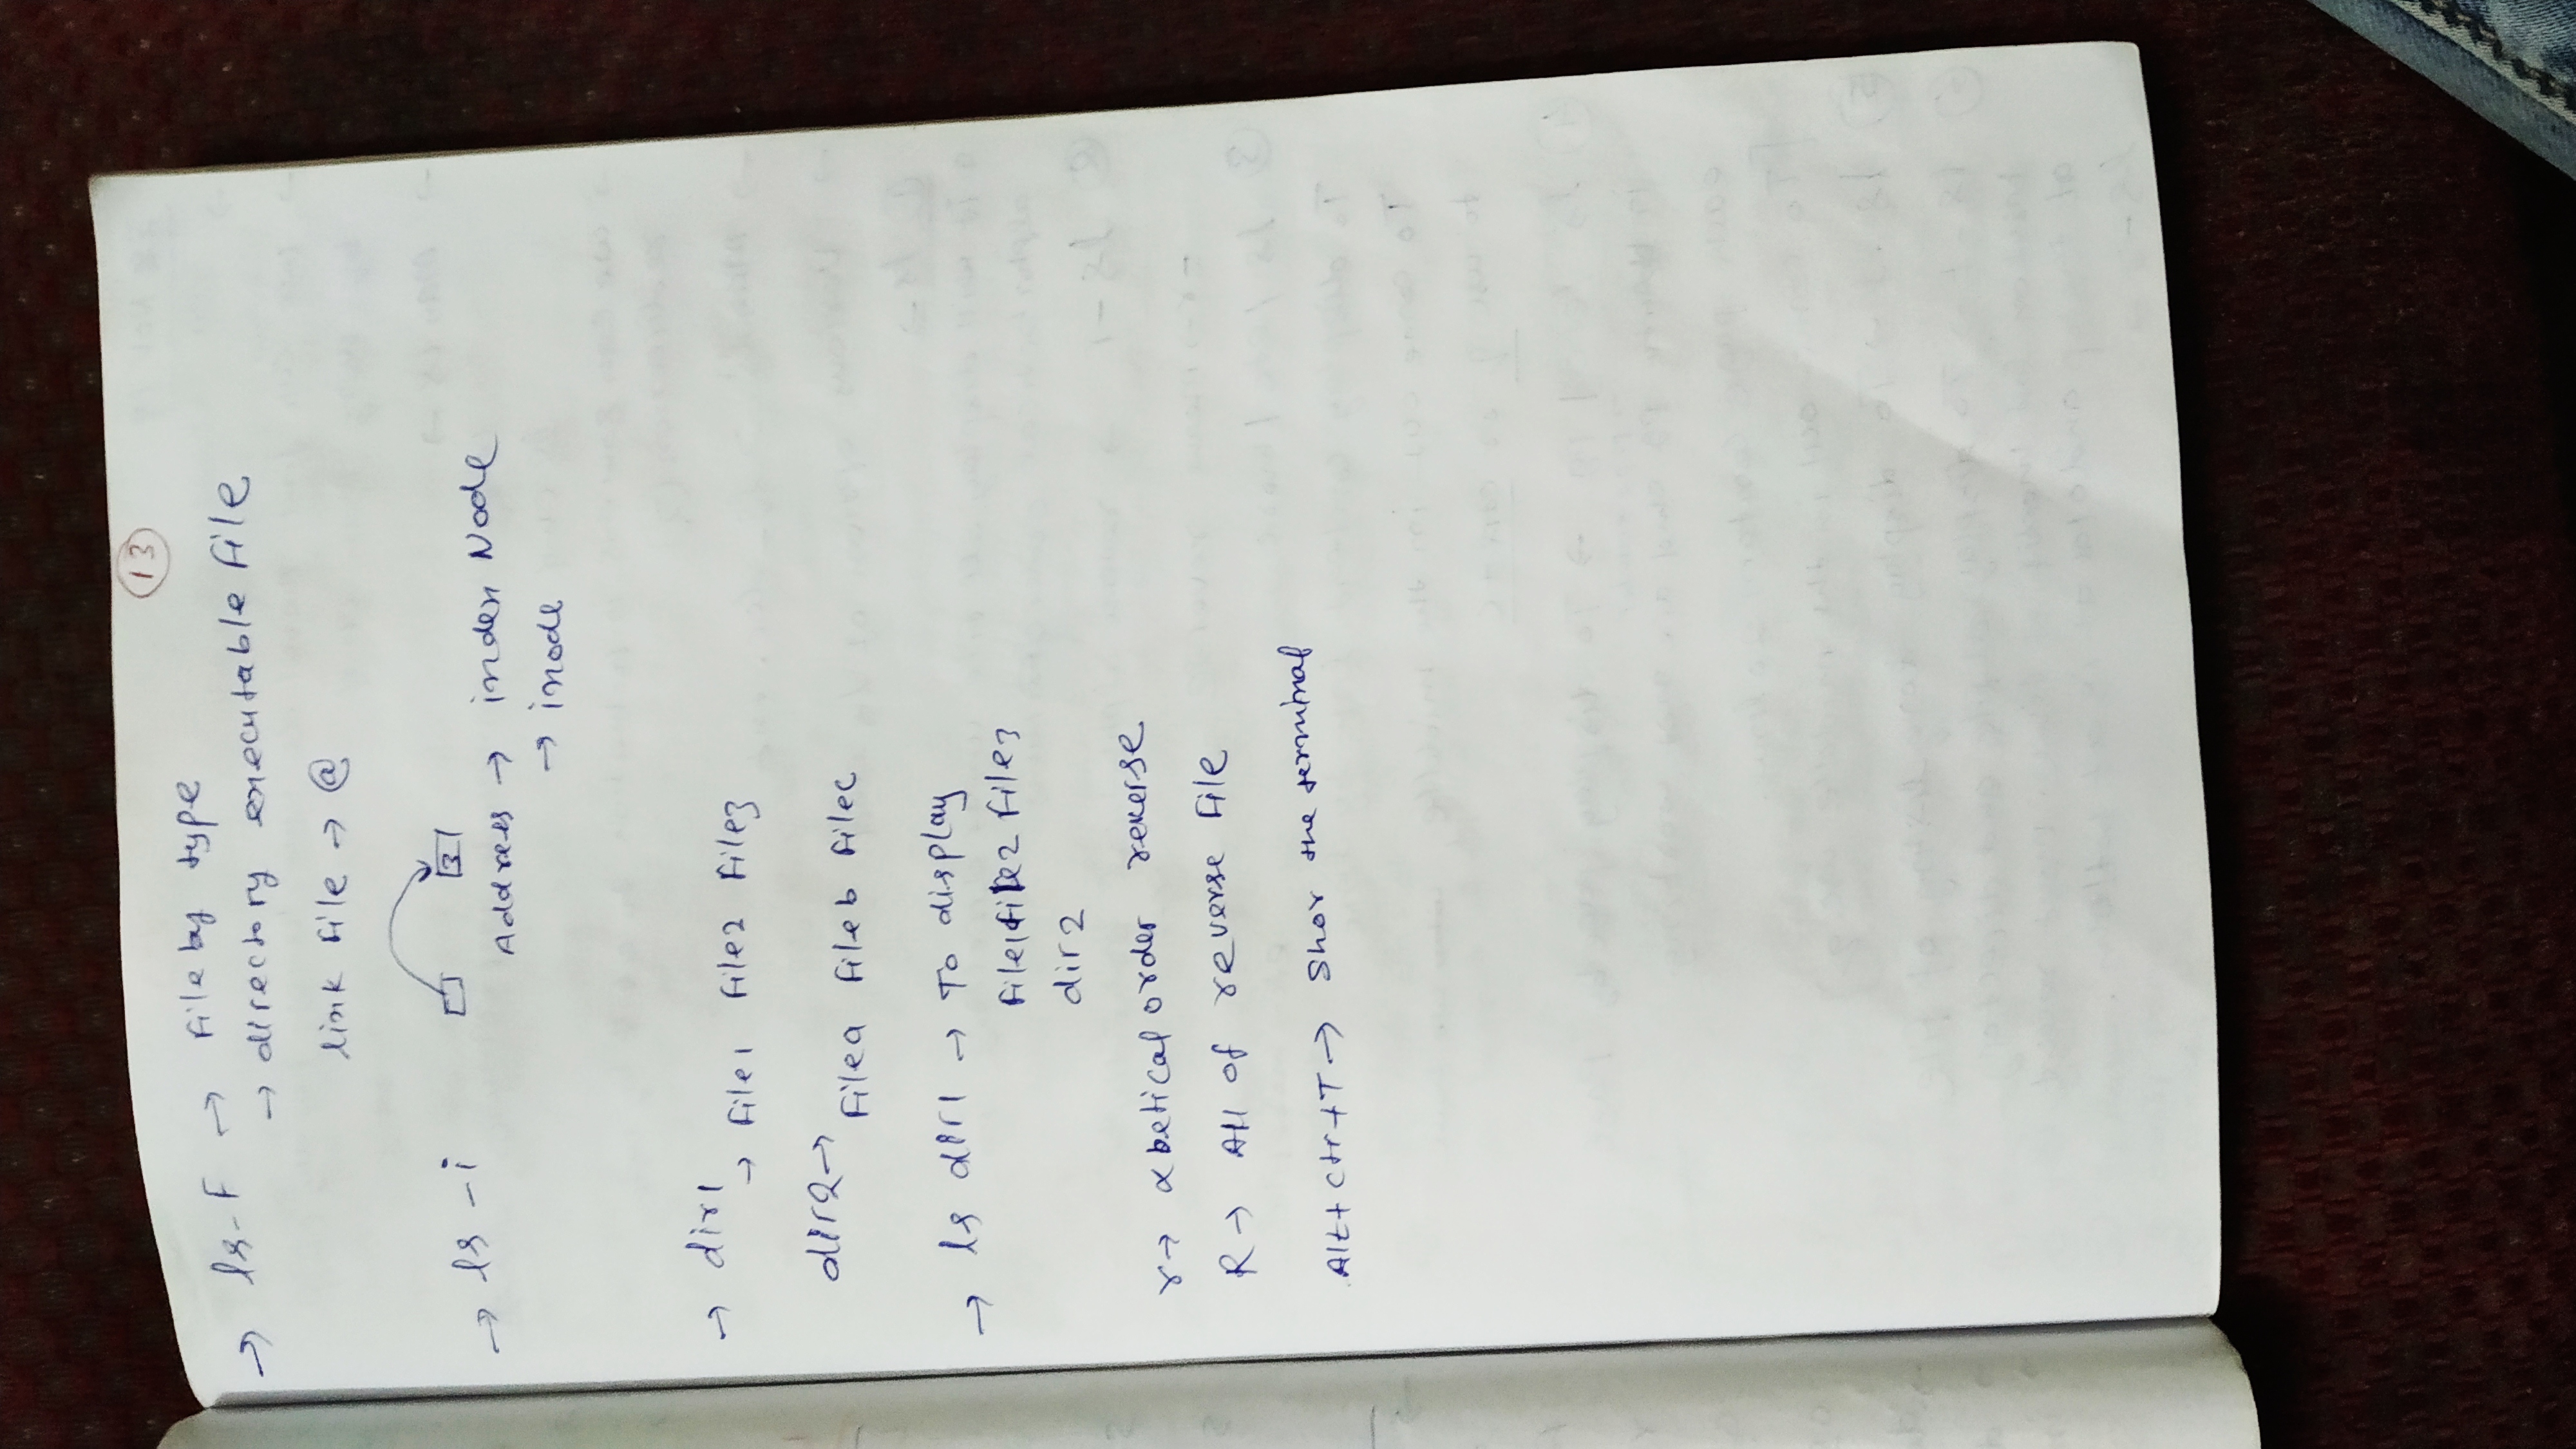 13
→ ls-F → File by type
→ directory executable file
link file → @
→ ls -i
3
Address → index Node
→ inode
→ dir1
→ File1 File2 File3
dir2→
Filea Fileb Filec
→ ls dir1 → To display
File1 file2 File3
dir2
r→ αbetical order reverse
R→ All of reverse File
Alt+ctr+T→ Shor the terminal